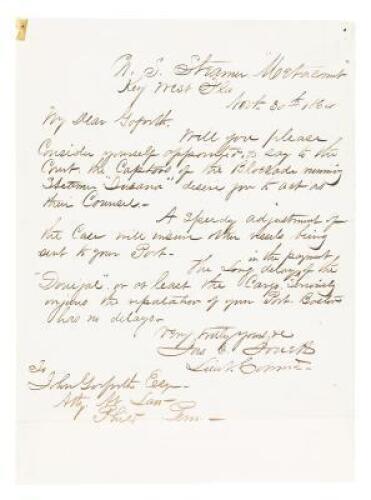 U. S. Steamer "Metacomet"
Key West Fla
Novr. 30th 1864
My Dear Goforth.
Will you please
Consider yourself appointed, or say to the
Court, the Captors of the Blockade running
Steamer "Susanna" desire you to act as
their Counsel.-
A speedy adjustment of
the Case will insure other vessels being
sent to your Port.-
in the payment
The long delay of the
"Donegal" or at least the Cargo, seriously
injures the reputation of your Port. Boston
has no delays.-
Very truly yours &c
Jas E. Jouett
Lieut Comm
To
John Goforth Esq-
Atty At Law-
Phila Penn-